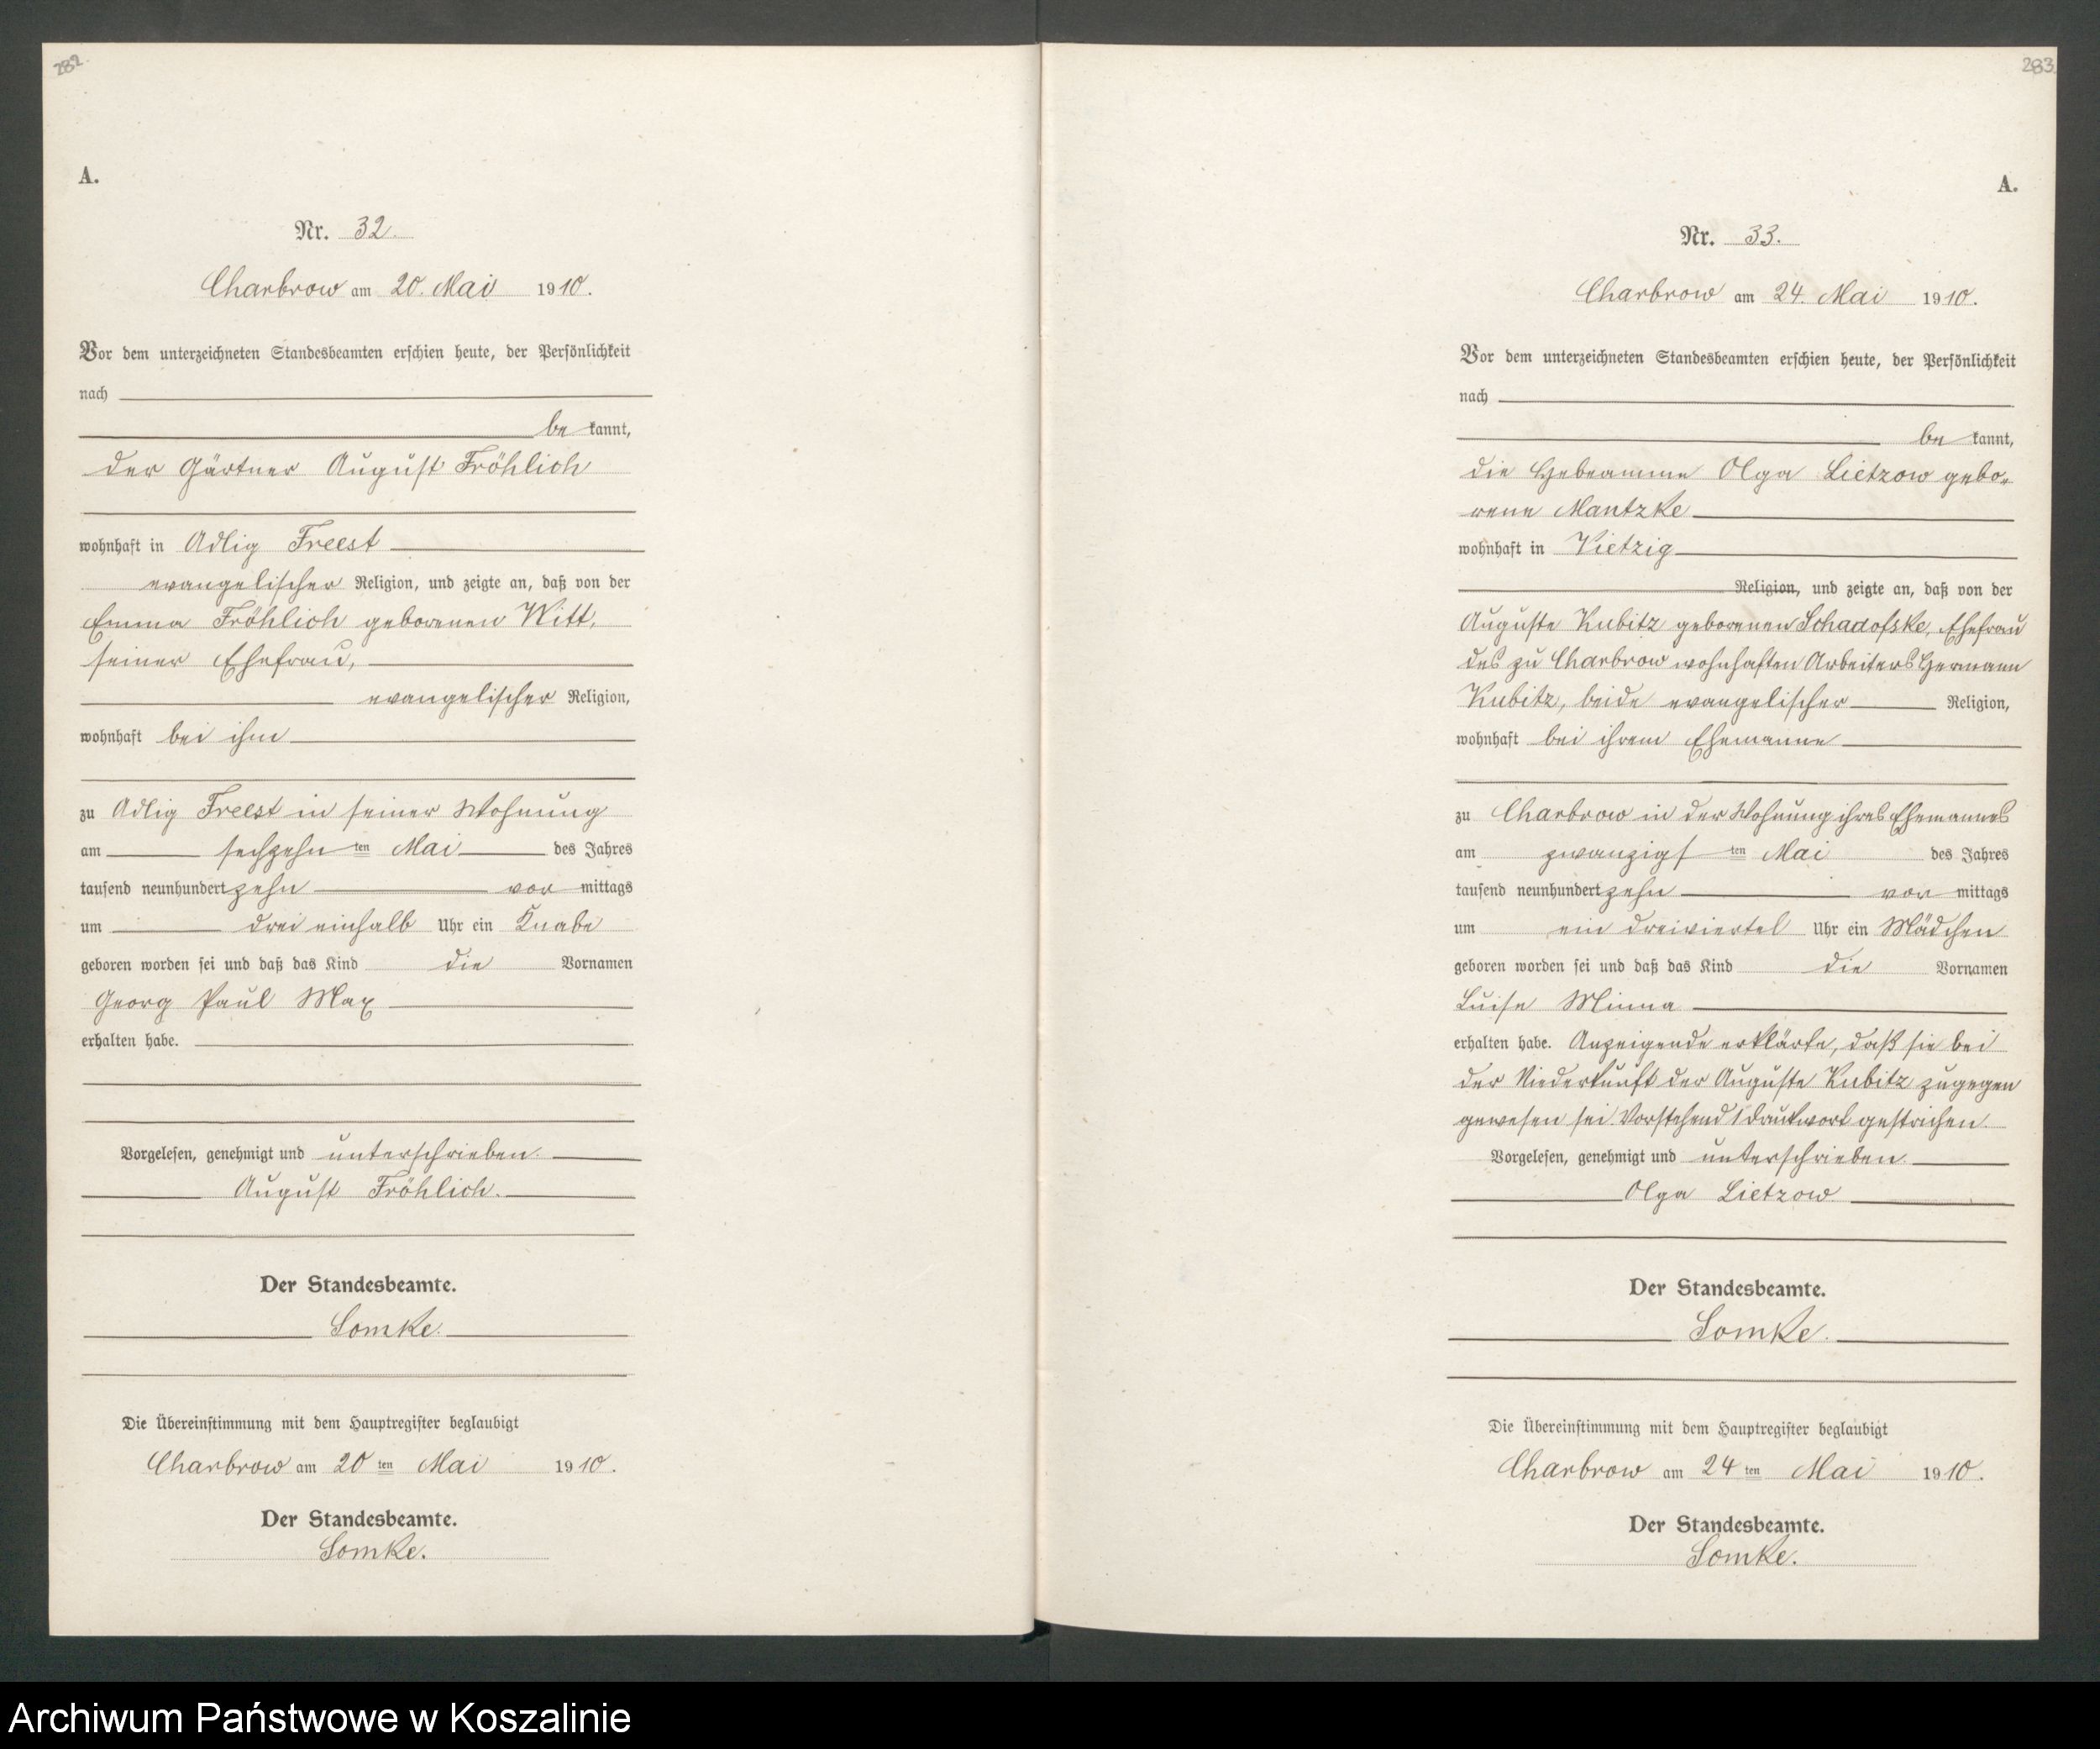 282.
A.
Nr. 32.
Charbrow am 20. Mai 1910.
Vor dem unterzeichneten Standesbeamten erschien heute, der Persönlichkeit
nach
be kannt,
der Gärtner August Fröhlich
wohnhaft in Adlig Freest
evangelischer Religion, und zeigte an, daß von der
Emma Fröhlich geborenen Witt,
seiner Ehefrau,
evangelischer Religion,
wohnhaft bei ihm
zu Adlig Freest in seiner Wohnung
am sechzehn ten Mai des Jahres
tausend neunhundert zehn vor mittags
um drei einhalb Uhr ein Knabe
geboren worden sei und daß das Kind die Vornamen
Georg Paul Max
erhalten habe.
Vorgelesen, genehmigt und unterschrieben.
August Fröhlich.
Der Standesbeamte.
Lomke.
Die Übereinstimmung mit dem Hauptregister beglaubigt
Charbrow am 20 ten Mai 1910.
Der Standesbeamte.
Lomke.
283.
A.
Nr. 33.
Charbrow am 24. Mai 1910.
Vor dem unterzeichneten Standesbeamten erschien heute, der Persönlichkeit
nach
be kannt,
die Hebeamme Olga Lietzow gebo-
rene Mantzke
wohnhaft in Vietzig
Religion, und zeigte an, daß von der
Auguste Kubitz geborenen Schadofske, Ehefrau
des zu Charbrow wohnhaften Arbeiters Hermann
Kubitz, beide evangelischer Religion,
wohnhaft bei ihrem Ehemanne
zu Charbrow in der Wohnung ihres Ehemannes
am zwanzigs ten Mai des Jahres
tausend neunhundert zehn vor mittags
um ein dreiviertel Uhr ein Mädchen
geboren worden sei und daß das Kind die Vornamen
Luise Minna
erhalten habe. Anzeigende erklärte, daß sie bei
der Niederkunft der Auguste Kubitz zugegen
gewesen sei. Vorstehend 1 Druckwort gestrichen.
Vorgelesen, genehmigt und unterschrieben.
Olga Lietzow
Der Standesbeamte.
Lomke.
Die Übereinstimmung mit dem Hauptregister beglaubigt
Charbrow am 24 ten Mai 1910.
Der Standesbeamte.
Lomke.
Archiwum Państwowe w Koszalinie